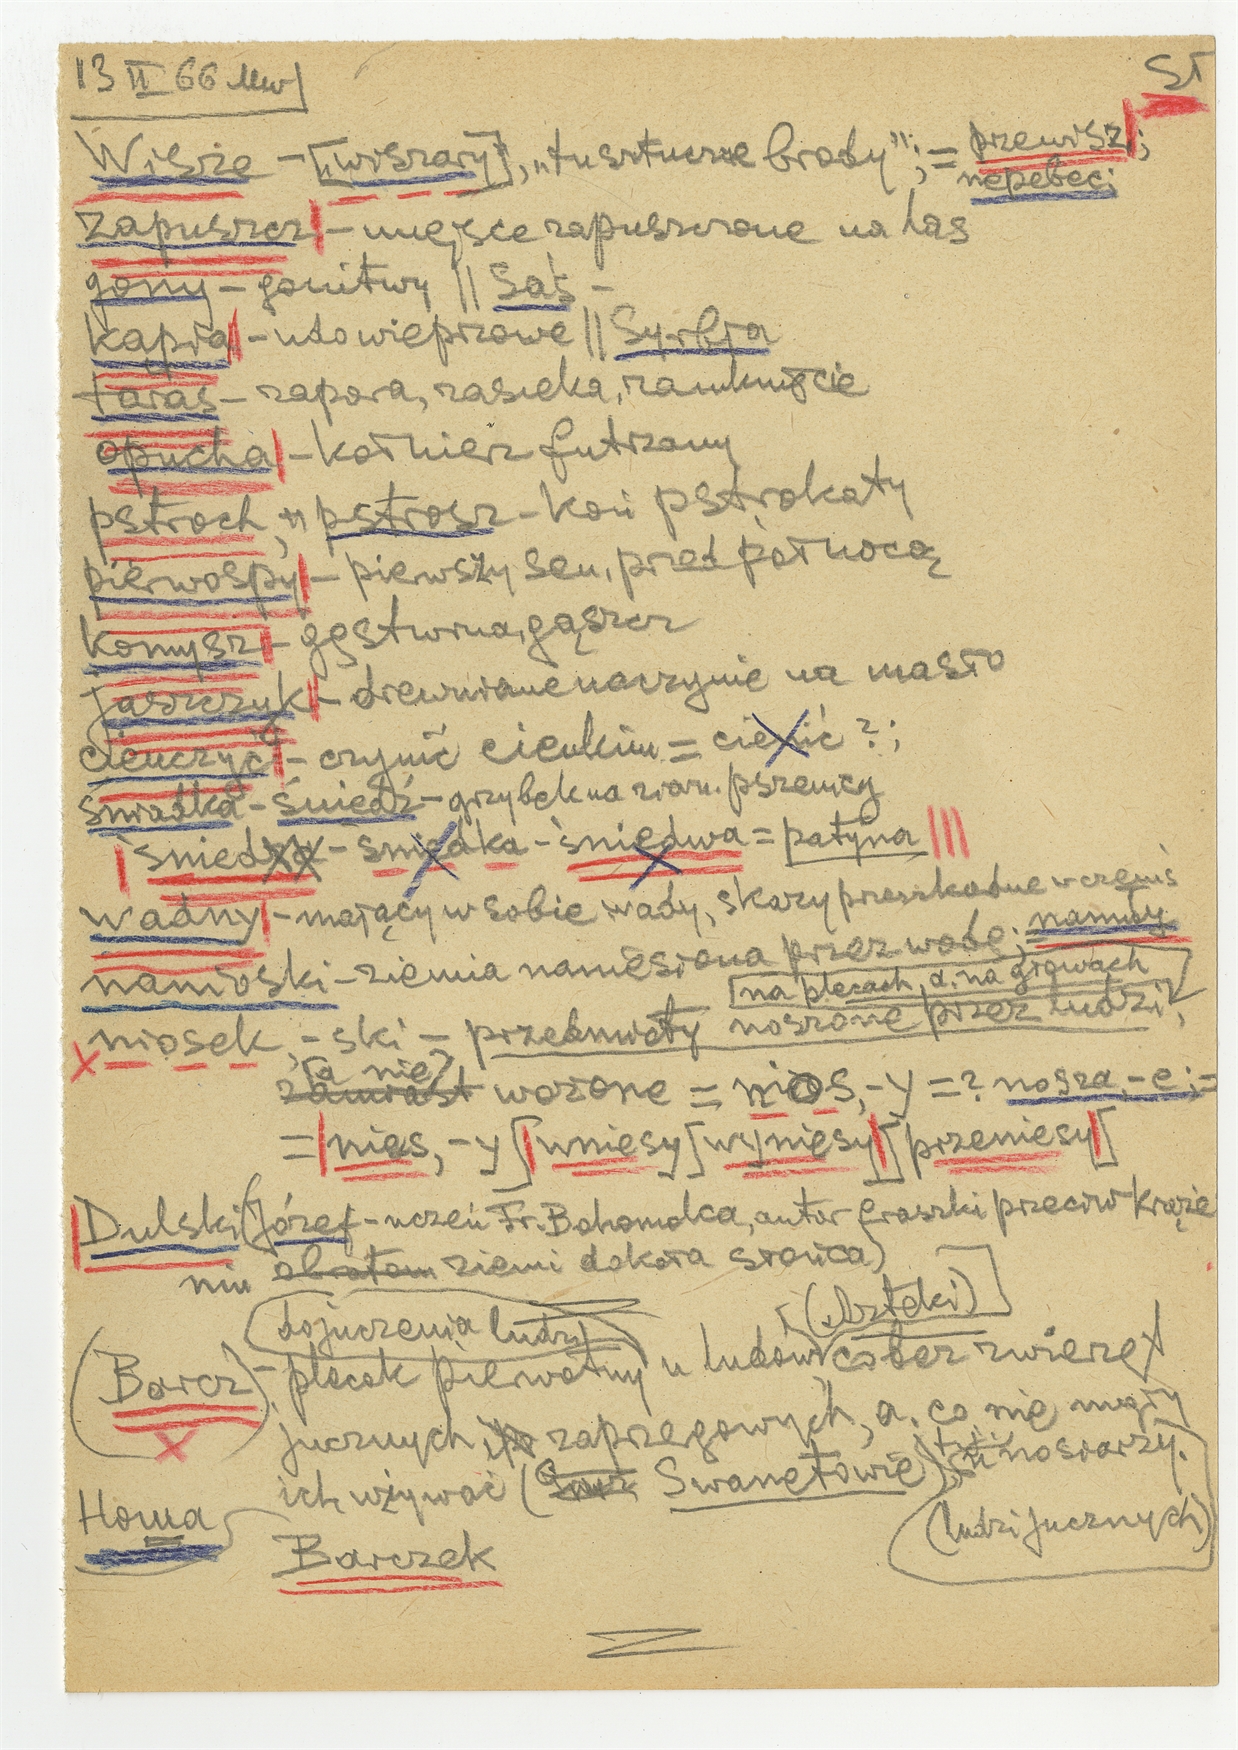 13 II 66
Sł
Wisze - [„wiszary], „tu sztuczne brody”; = przewisz;
nepebeci
zapuszcz - miejsce zapuszczone na las
gony - gonitwy || Saś -
kapia - udo wieprzowe || Syrbja
taras - zapora, zasieka, zamknięcie
opucha - kołnierz futrzany
pstroch, pstrosz - koń pstrokaty
pierwospy - pierwszy sen, przed północą
komysz - gęstwina, gąszcz
jaszczyk - drewniane naczynie na masło
cieńczyć - czynić cienkim = cienić?;
śniadka - śniedź - grzybek na ziarn. pszenicy
śniedź - śniedka - śniedwa = patyna
wadny - mający w sobie wady, skazy przeszkadne w czemś
nanioski - ziemia naniesiona przez wodę; = namuły
[na plecach, a. na głowach
niosek, -ski - przedmioty noszone przez ludzi,
[a nie]
zamiast wożone = nios, -y = ? nosza, -e; =
= nies, -y [wniesy [wyniesy] [przeniesy] [
Dulski (Józef - uczeń Fr. Bohomolca, autor fraszki przeciw krąże
niu obrotom ziemi dokoła słońca)
do juczenia ludzi
(Azteki)
(Barcz) - plecak pierwotny u ludów, co bez zwierząt
jucznych, zaprzęgowych, a. co nie mogły
ich używać (Swanetowie) nosiarzy.
(ludzi jucznych)
Homa
Barczek